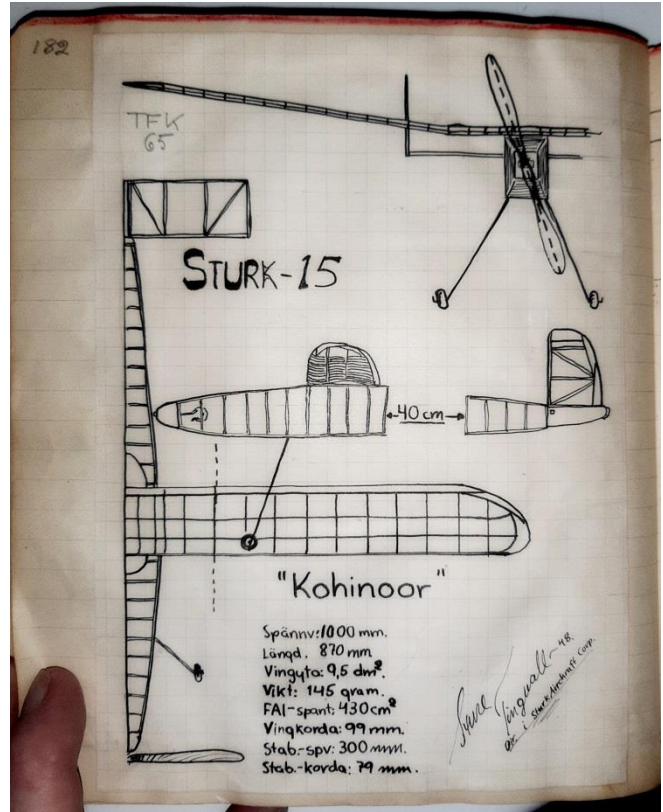 182
TFK
65
STURK-15
40 cm
"Kohinoor"
Spännv: 1000 mm.
Längd. 870 mm
Vingyta: 9,5 dm².
Vikt: 145 gram.
FAI-spant: 430 cm²
Vingkorda: 99 mm.
Stab.-spv: 300 mm.
Stab.-korda: 79 mm.
Sture Tingwall-48.
i Sturk Aircraft Corp.